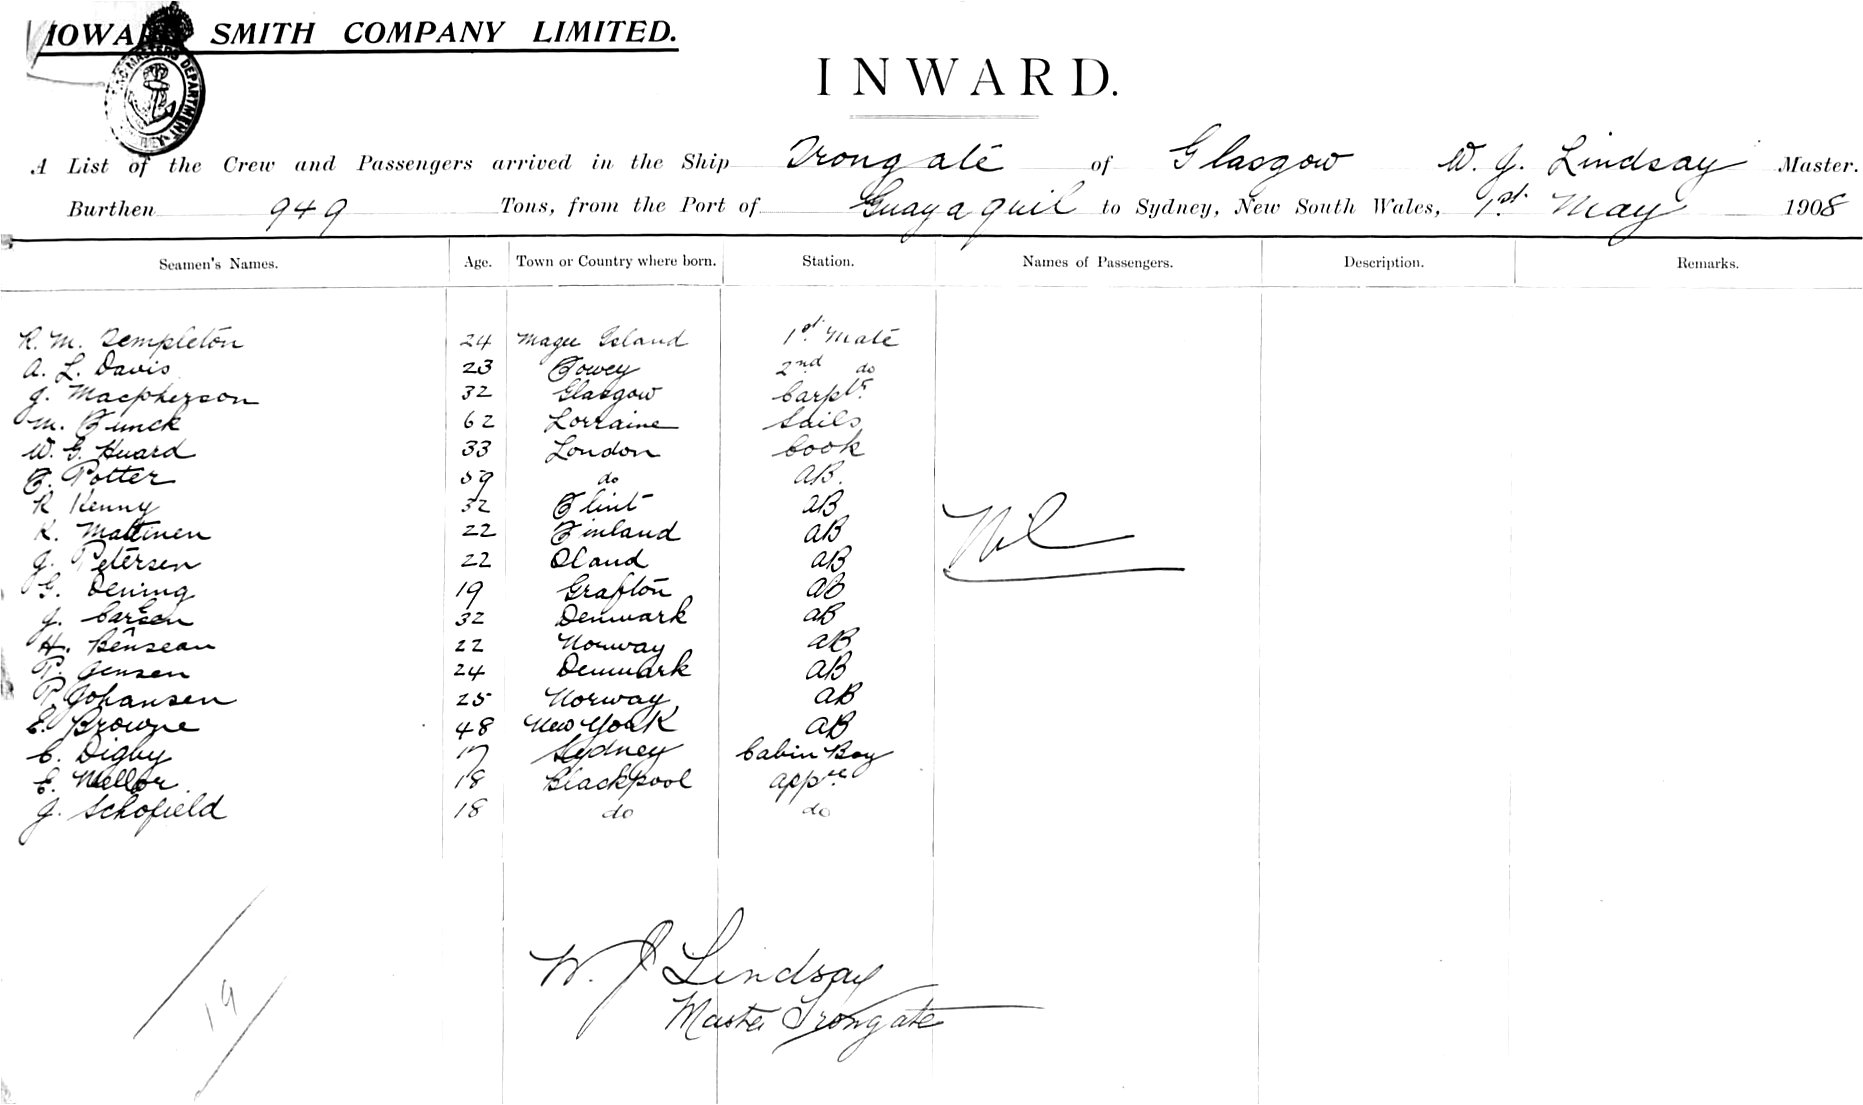 HOWARD SMITH COMPANY LIMITED.
INWARD.
A List of the Crew and Passengers arrived in the Ship Trongate of Glasgow W. J. Lindsay Master.
Burthen 949 Tons, from the Port of Guayaquil to Sydney, New South Wales, 1st May 1908
Seamen's Names. Age. Town or Country where born. Station. Names of Passengers. Description. Remarks.
R. M. Templeton 24 Magee Island 1st Mate
A. L. Davis 23 Fowey 2nd do
J. Macpherson 32 Glasgow Carptr
M. Funck 62 Lorraine Sails
W. G. Huard 33 London Cook
F. Potter 59 do AB.
R Kenny 32 Flint AB
K. Mattinen 22 Finland AB
J. Petersen 22 Oland AB
G. Dening 19 Grafton AB
J. Carlsen 32 Denmark AB
H. Bensean 22 Norway AB
P. Jensen 24 Denmark AB
P. Johansen 25 Norway AB
E. Browne 48 New York AB
C. Digby 17 Sydney Cabin Boy
E. Mellor 18 Blackpool Appre
J. Schofield 18 do do
Nil
19
W. J Lindsay
Master Trongate